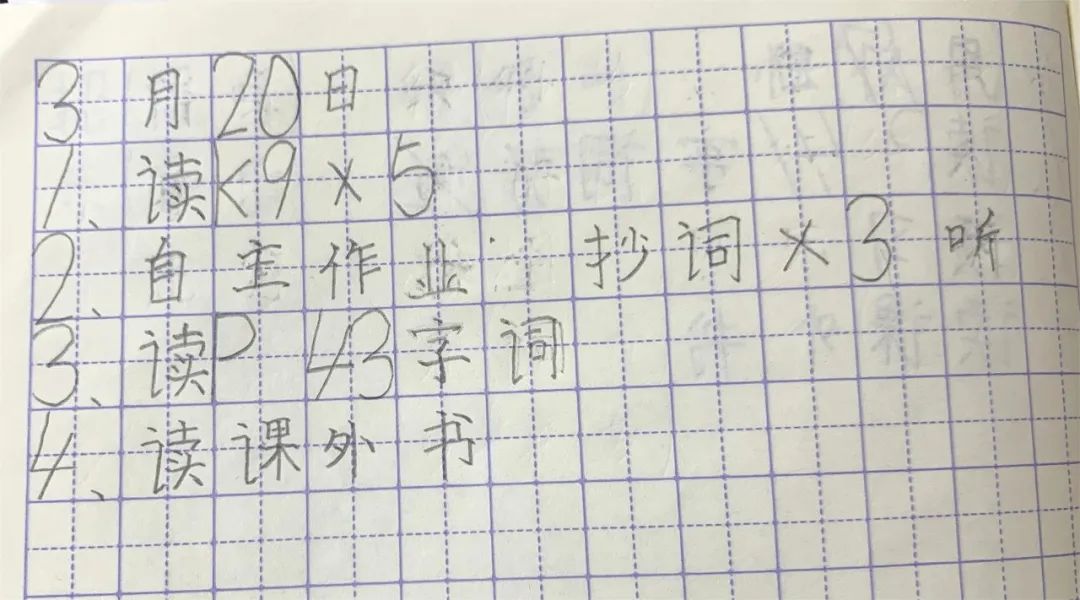 3月20日
1、读K9×5
2、自主作业：抄词×3 听
3、读P 43字词
4、读课外书